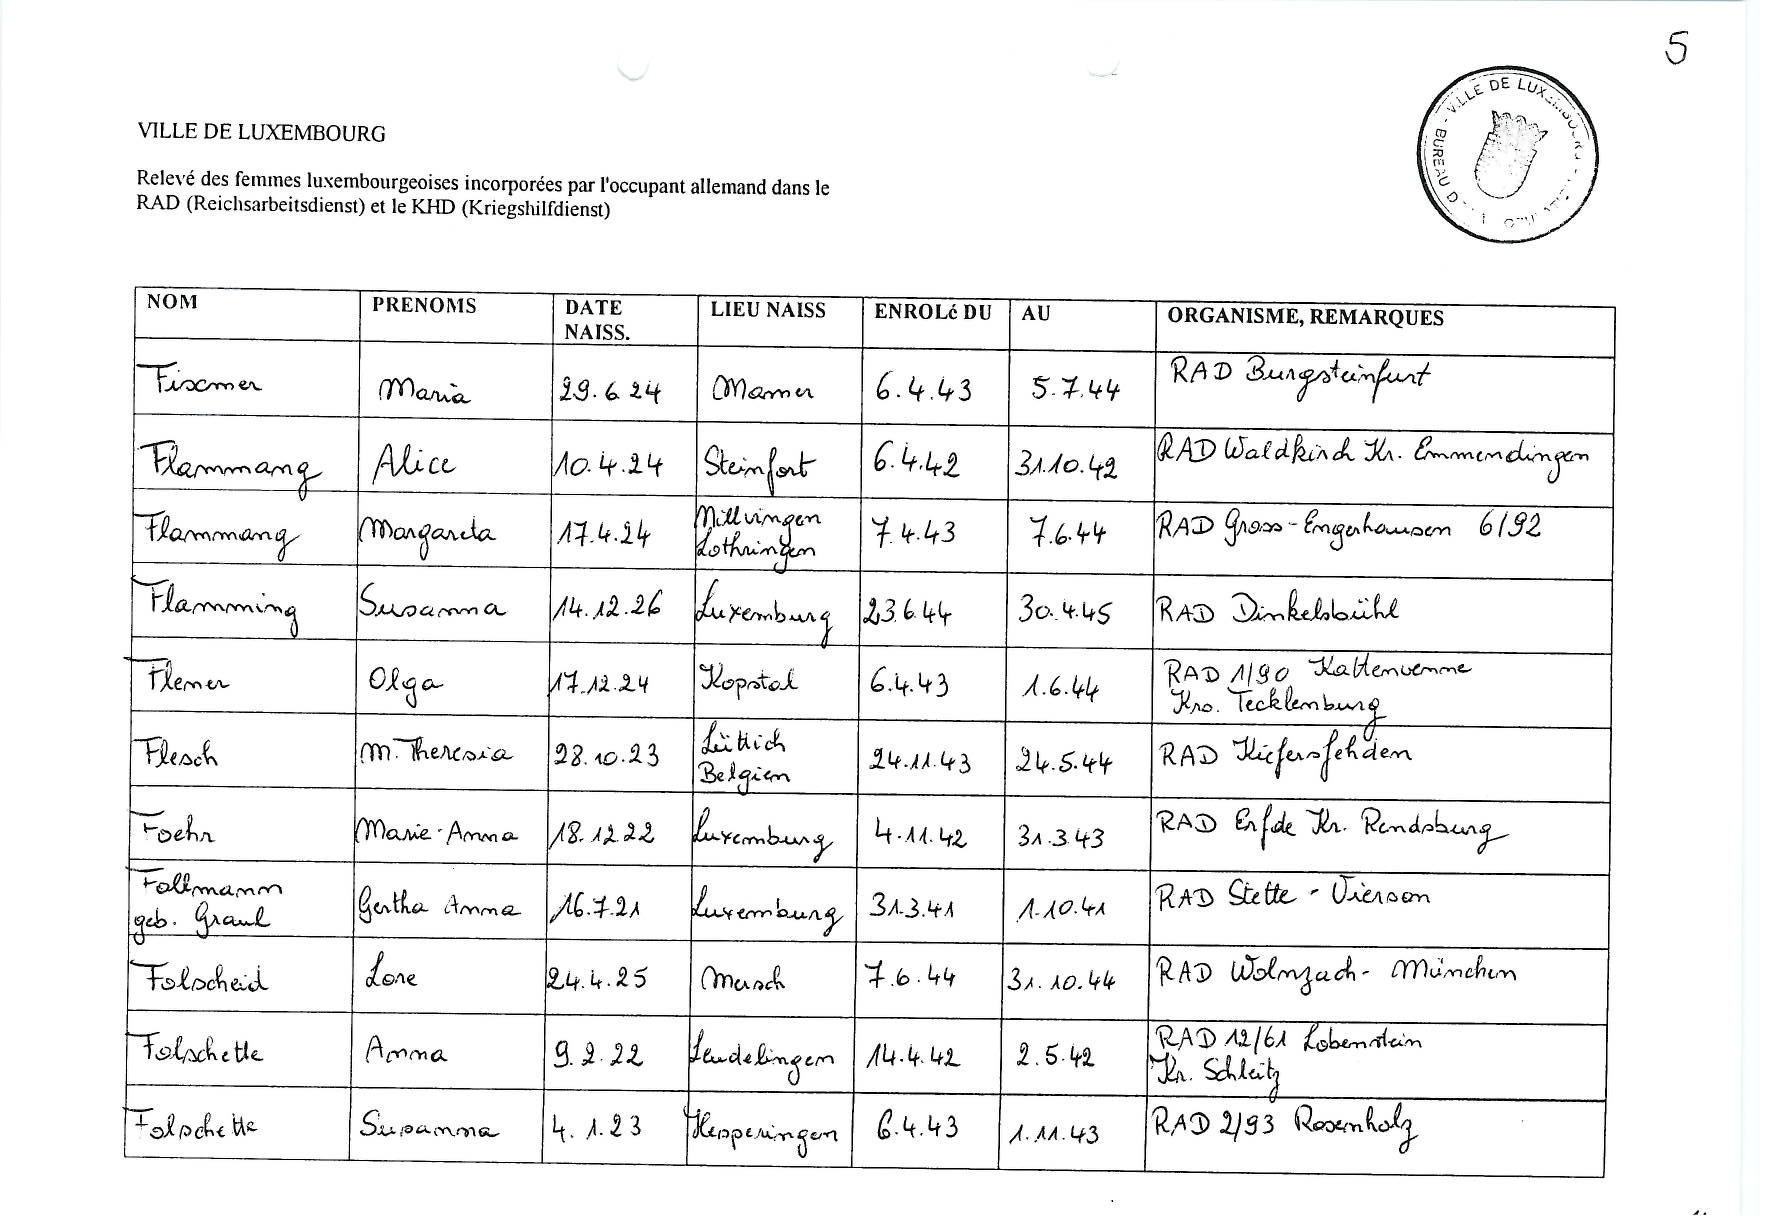 5
VILLE DE LUXEMBOURG
Relevé des femmes luxembourgeoises incorporées par l'occupant allemand dans le
RAD (Reichsarbeitsdienst) et le KHD (Kriegshilfdienst)
VILLE DE LUXEMBOURG - BUREAU D
NOM PRENOMS DATE NAISS. LIEU NAISS ENROLé DU AU ORGANISME, REMARQUES
Fixmer Maria 29.6.24 Mamer 6.4.43 5.7.44 RAD Burgsteinfurt
Flammang Alice 10.4.24 Steinfort 6.4.42 31.10.42 RAD Waldkirch Kr. Emmendingen
Flammang Margareta 17.4.24 Millvingen Lothringen 7.4.43 7.6.44 RAD Gross-Engerhausen 6/92
Flamming Susanna 14.12.26 Luxemburg 23.6.44 30.4.45 RAD Dinkelsbühl
Flener Olga 17.12.24 Kopstal 6.4.43 1.6.44 RAD 1/90 Kattenvenne
Krs. Tecklenburg
Flesch M. Theresia 28.10.23 Lüttich Belgien 24.11.43 24.5.44 RAD Kiefersfehden
Foehr Marie-Anna 18.12.22 Luxemburg 4.11.42 31.3.43 RAD Erfde Kr. Rendsburg
Follmann geb. Graul Gertha Anna 16.7.21 Luxemburg 31.3.41 1.10.41 RAD Stette - Vierson
Folscheid Lore 24.4.25 Mersch 7.6.44 31.10.44 RAD Wolnzach - München
Folschette Anna 9.2.22 Leudelingen 14.4.42 2.5.42 RAD 12/61 Lobenstein
Kr. Schleitz
Folschette Susanna 4.1.23 Hesperingen 6.4.43 1.11.43 RAD 2/93 Rosenholz